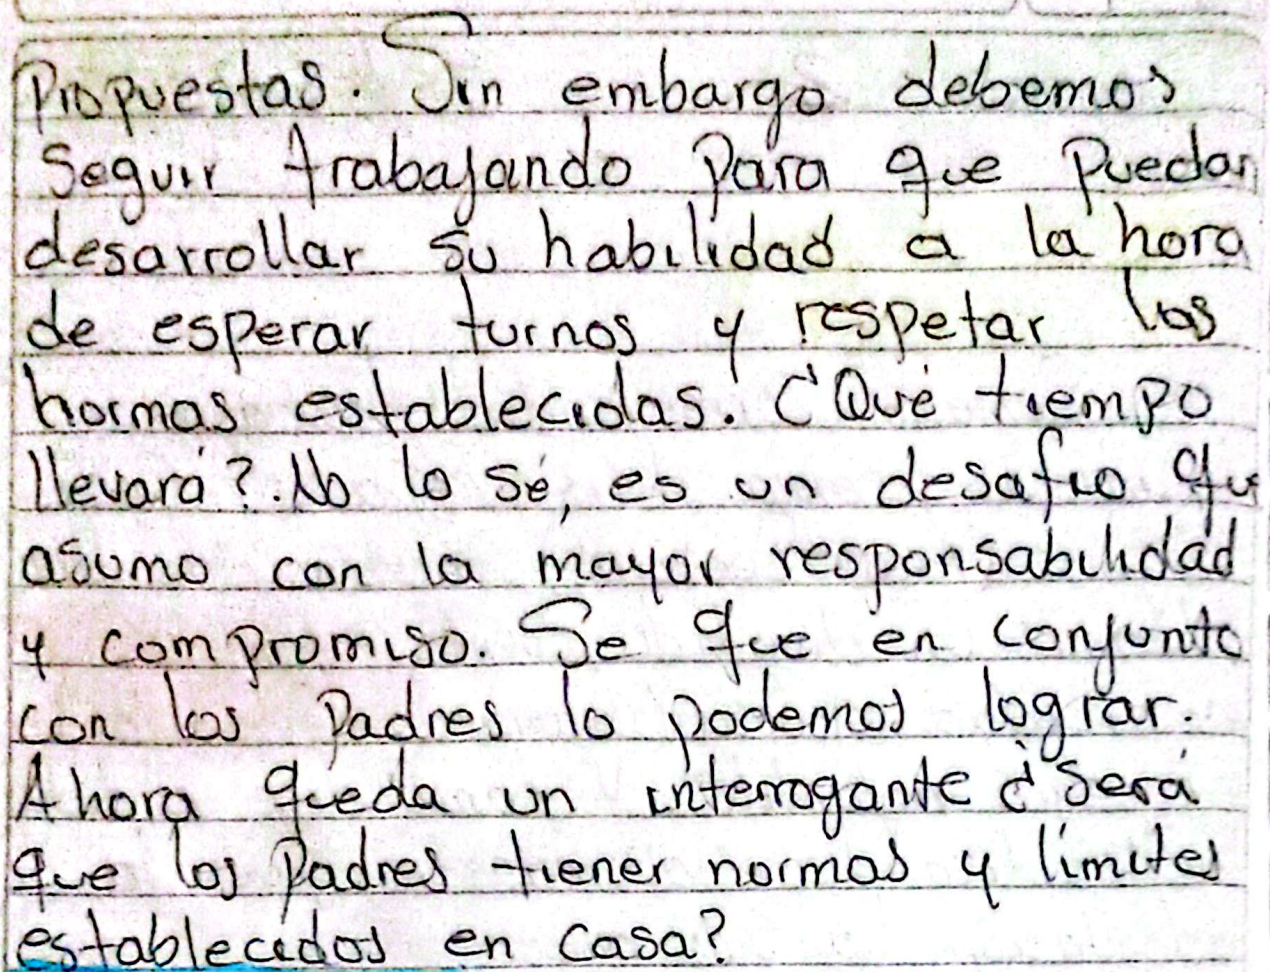 Propuestas. Sin embargo debemos
seguir trabajando para que puedan
desarrollar su habilidad a la hora
de esperar turnos y respetar las
normas establecidas. ¿Qué tiempo
llevará?. No lo sé, es un desafio que
asumo con la mayor responsabilidad
y compromiso. Se que en conjunto
con los padres lo podemos lograr.
Ahora queda un interrogante ¿Será
que los padres tienen normas y límites
establecidos en casa?